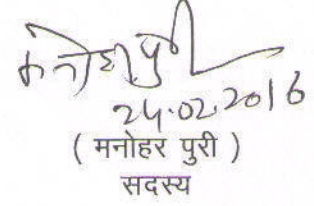 मनोहर पुरी
24.02.2016
( मनोहर पुरी )
सदस्य